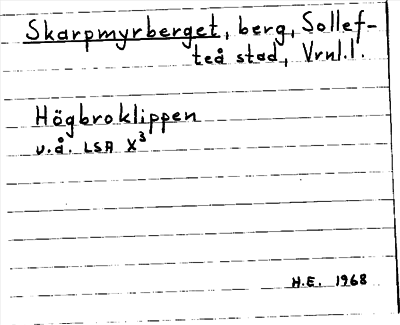 Skarpmyrberget, berg, Sollef-
teå stad, Vrnl.l.
Högbroklippen
v.å. LSA X³
H.E. 1968